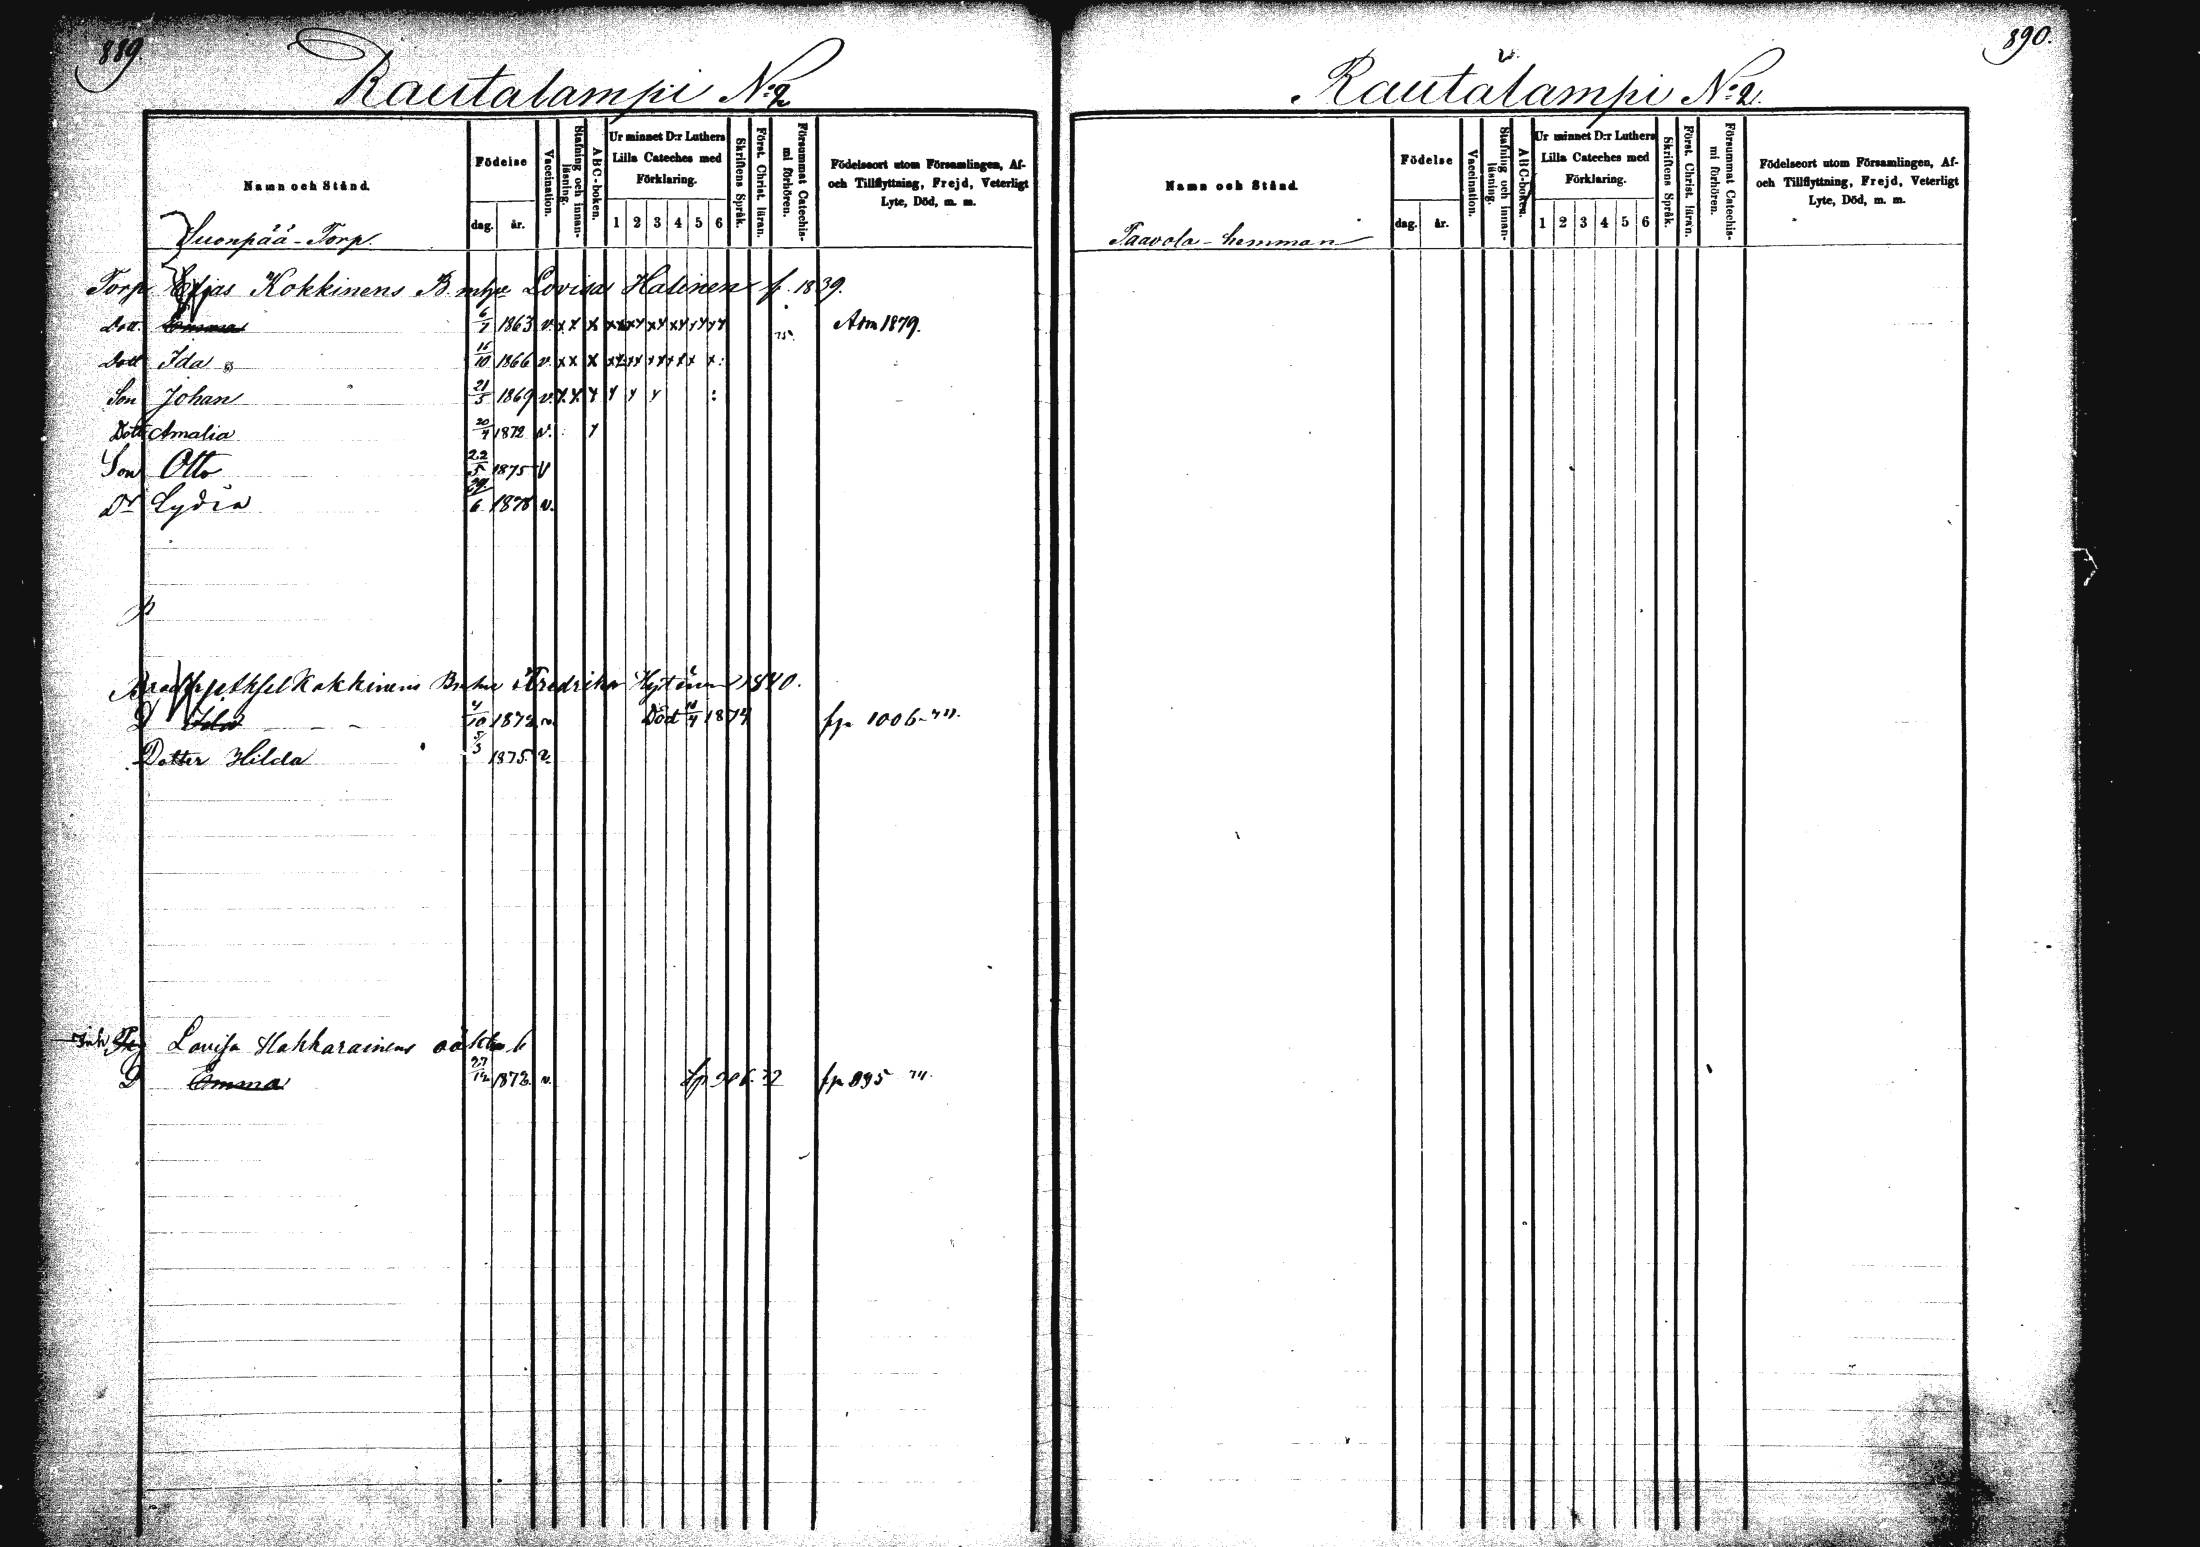 889.
Rautalampi No 2
Namn och Stånd.
Födelse
dag.
år.
Vaccination.
Stafning och innanläsning.
ABC-boken.
Ur minnet D:r Luthers
Lilla Cateches med
Förklaring.
1 2 3 4 5 6
Skriftens Språk.
Först. Christ. läran.
Försummat Catechismi förhören.
Födelseort utom Församlingen, Af-
och Tillflyttning, Frejd, Veterligt
Lyte, Död, m. m.
Suonpää-Torp.
Torp Elias Kokkinens B mhu Lovisa Halinen f. 1839.
Dott. Emma 6/7 1863 v. Atm 1879.
Dott Ida 16/10 1866 v.
Son Johan 21/3 1869 v.
Dott Amalia 20/4 1872 v.
Son Otto 22/5 1875 v
Dr Lydia 29/6 1878 v.
Kokkinens Fredrika 1840.
D Ida 4/10 1872 v. Död 1874 fp 1006
Dotter Hilda 5/3 1875. v.
Inh Lovisa Hakkarainens oäkta b
D Emma 27/12 1872. v. fp 895 74.
890.
Rautalampi No 2.
Namn och Stånd.
Födelse
dag.
år.
Vaccination.
Stafning och innanläsning.
ABC-boken.
Ur minnet D:r Luthers
Lilla Cateches med
Förklaring.
1 2 3 4 5 6
Skriftens Språk.
Först. Christ. läran.
Försummat Catechismi förhören.
Födelseort utom Församlingen, Af-
och Tillflyttning, Frejd, Veterligt
Lyte, Död, m. m.
Paavola-hemman